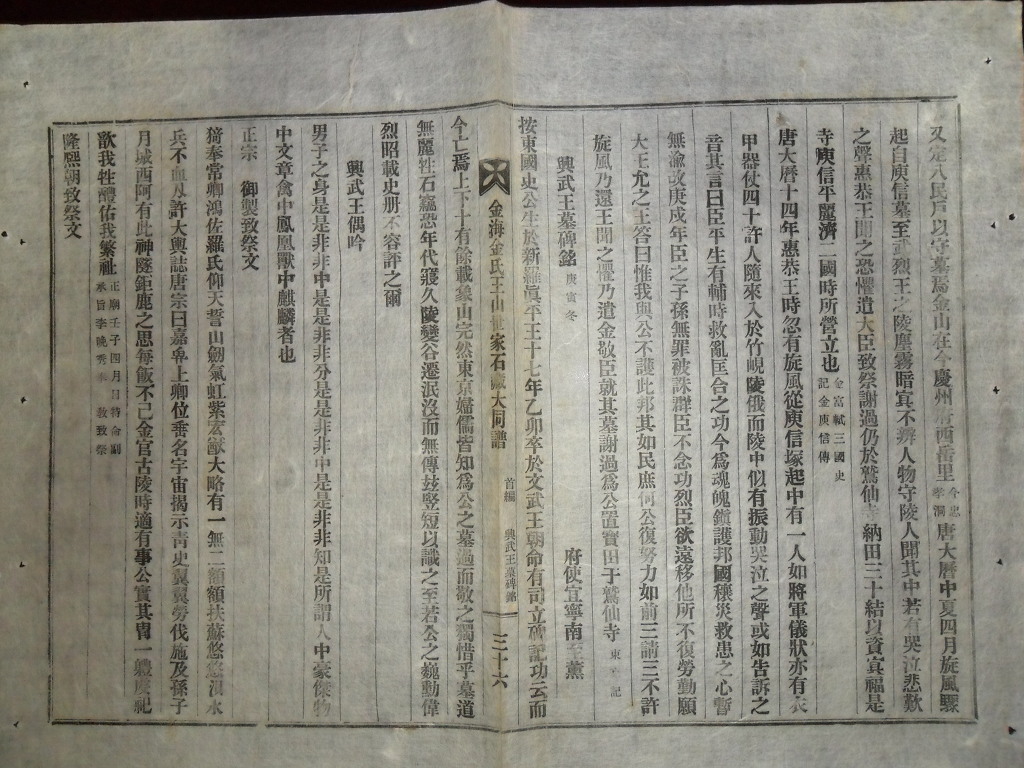 又定八民戶以守墓焉金山在今慶州府西岳里今忠孝洞唐大曆中夏四月旋風驟
起自庾信墓至武烈王之陵塵霧暗宾不辨人物守陵人聞其中若有哭泣悲歎
之聲惠恭王聞之恐懼遣大臣致祭謝過仍於鷲仙寺納田三十結以資宾福是
寺庾信平麗濟二國時所營立也金富軾三國史記金庾信傳
唐大曆十四年惠恭王時忽有旋風從庾信塚起中有一人如將軍儀狀亦有衣
甲器仗四十許人隨來入於竹峴陵俄而陵中似有振動哭泣之聲或如告訴之
音其言曰臣平生有輔時救亂匡合之功今爲魂魄鎭護邦國穰災救患之心暫
無渝改庚戌年臣之子孫無罪被誅羣臣不念功烈臣欲遠移他所不復勞勤願
大王允之王答曰惟我與公不護此邦其如民庶何公復努力如前三請三不許
旋風乃還王聞之懼乃遣金敬臣就其墓謝過爲公置寶田于鷲仙寺東 記
興武王墓碑銘庚寅冬 府使宜寧南至薰
按東國史公生於新羅眞平王十七年乙卯卒於文武王朝命有司立碑記功云而
金海金氏王山世家石 大同譜 首編 興武王墓碑銘 三十六
今亡焉上下千有餘載象山完然東京婦儒皆知爲公之墓過而敬之獨惜乎墓道
無麗牲石竊恐年代寢久陵變谷遷泯沒而無傳玆竪短以識之至若公之巍勳偉
烈昭載史册不容評之爾
興武王偶吟
男子之身是是非非中是是非非分是是非非中是是非非知是所謂人中豪傑物
中文章禽中鳳凰獸中麒麟者也
正宗 御製致祭文
猗奉常卿鴻佐羅氏仰天誓山劒氣虹紫宏猷大略有一無二額額扶蘇悠悠浿水
兵不血刃許大輿誌唐宗曰嘉畀上卿位垂名宇宙揭示靑史翼翼勞伐施及孫子
月城西阿有此神隧鉅鹿之思每飯不已金官古陵時適有事公實其冑一軆虔祀
歆我牲醴佑我繁祉正廟壬子四月日特命副承旨李晩秀 致祭
隆熙朝致祭文